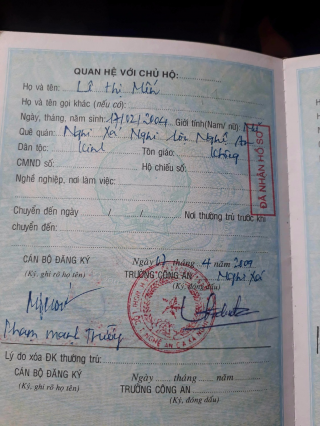 QUAN HỆ VỚI CHỦ HỘ:
Họ và tên: Lê Thị Mến
Họ và tên gọi khác (nếu có):
Ngày, tháng, năm sinh: 17/02/2004 Giới tính(Nam/ nữ):
Quê quán: Nghi Xá Nghi Lộc Nghệ An
Dân tộc: Kinh Tôn giáo: Không
CMND số: Hộ chiếu số:
Nghề nghiệp, nơi làm việc:
Chuyển đến ngày / / Nơi thường trú trước khi
chuyển đến:
ĐÃ NHẬN HỒ SƠ
Ngày tháng 4 năm 2009
CÁN BỘ ĐĂNG KÝ TRƯỞNG CÔNG AN Nghi Xá
(Ký, ghi rõ họ tên) (Ký, đóng dấu)
Phạm Mạnh
Lý do xóa ĐK thường trú:
Ngày tháng năm
CÁN BỘ ĐĂNG KÝ TRƯỞNG CÔNG AN
(Ký, ghi rõ họ tên) (Ký, đóng dấu)